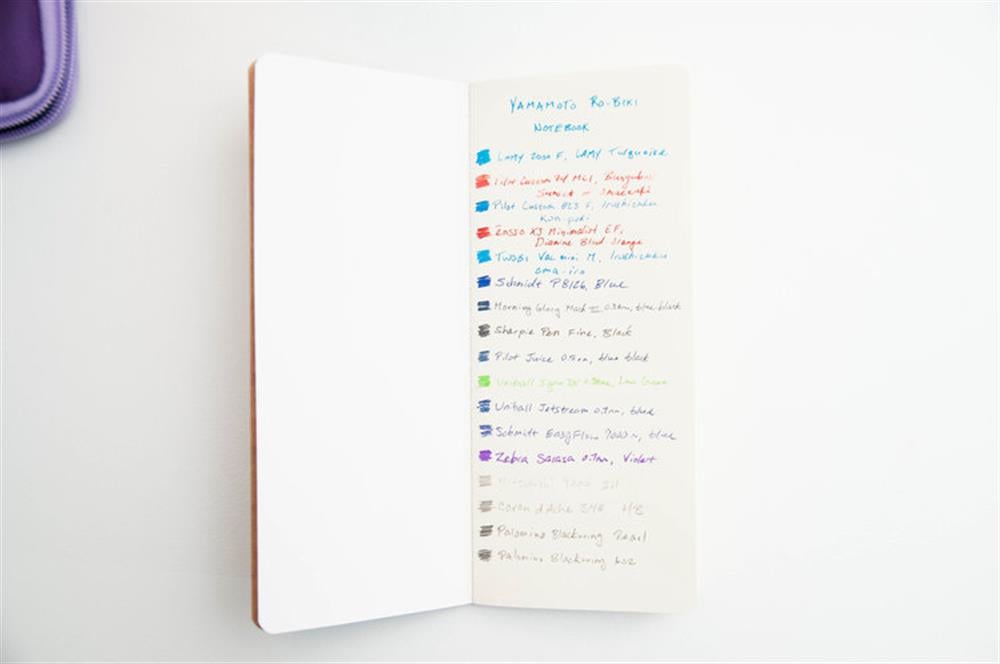 YAMAMOTO RO-BIKI
NOTEBOOK
LAMY 2000 F, LAMY Turquoise
Pilot Custom 74 MCI, Bungubox
Pilot Custom 823 F, Iroshizuku
Kon-peki
XJ Minimalist EF,
Diamine Blood Orange
TWSBI Vac mini M, Iroshizuku
ama-iro
Schmidt P8126, Blue
Morning Glory Mach III 0.38mm, blue black
Sharpie Pen Fine, Black
Pilot Juice 0.5mm, blue black
Uniball Signo DX 0.38mm, Lime Green
Uniball Jetstream 0.7mm, blue
Schmidt EasyFlow 9000 M, blue
Zebra Sarasa 0.7mm, Violet
Mitsubishi 9800 2H
Caran d'Ache HB
Palomino Blackwing Pearl
Palomino Blackwing 602